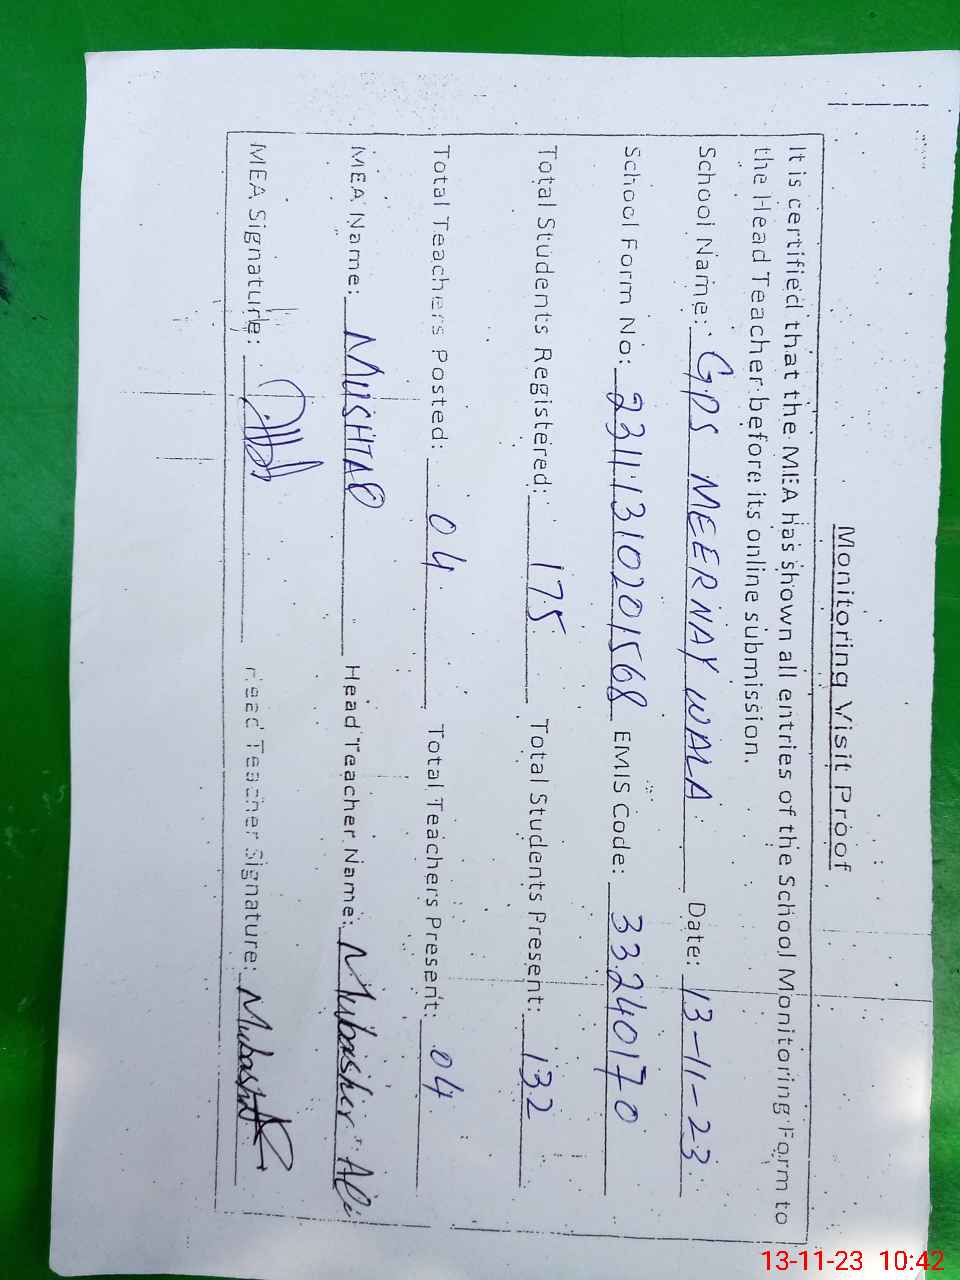 Monitoring Visit Proof
It is certified that the MEA has shown all entries of the School Monitoring Form to
the Head Teacher before its online submission.
School Name: GPS MEERNAY WALA Date: 13-11-23
School Form No: 23111310201568 EMIS Code: 33240170
Total Students Registered: 175 Total Students Present: 132
Total Teachers Posted: 04 Total Teachers Present: 04
MEA Name: MUSHTAQ Head Teacher Name: Mubasher Ali
MEA Signature: Head Teacher Signature: Mubasher
13-11-23 10:42